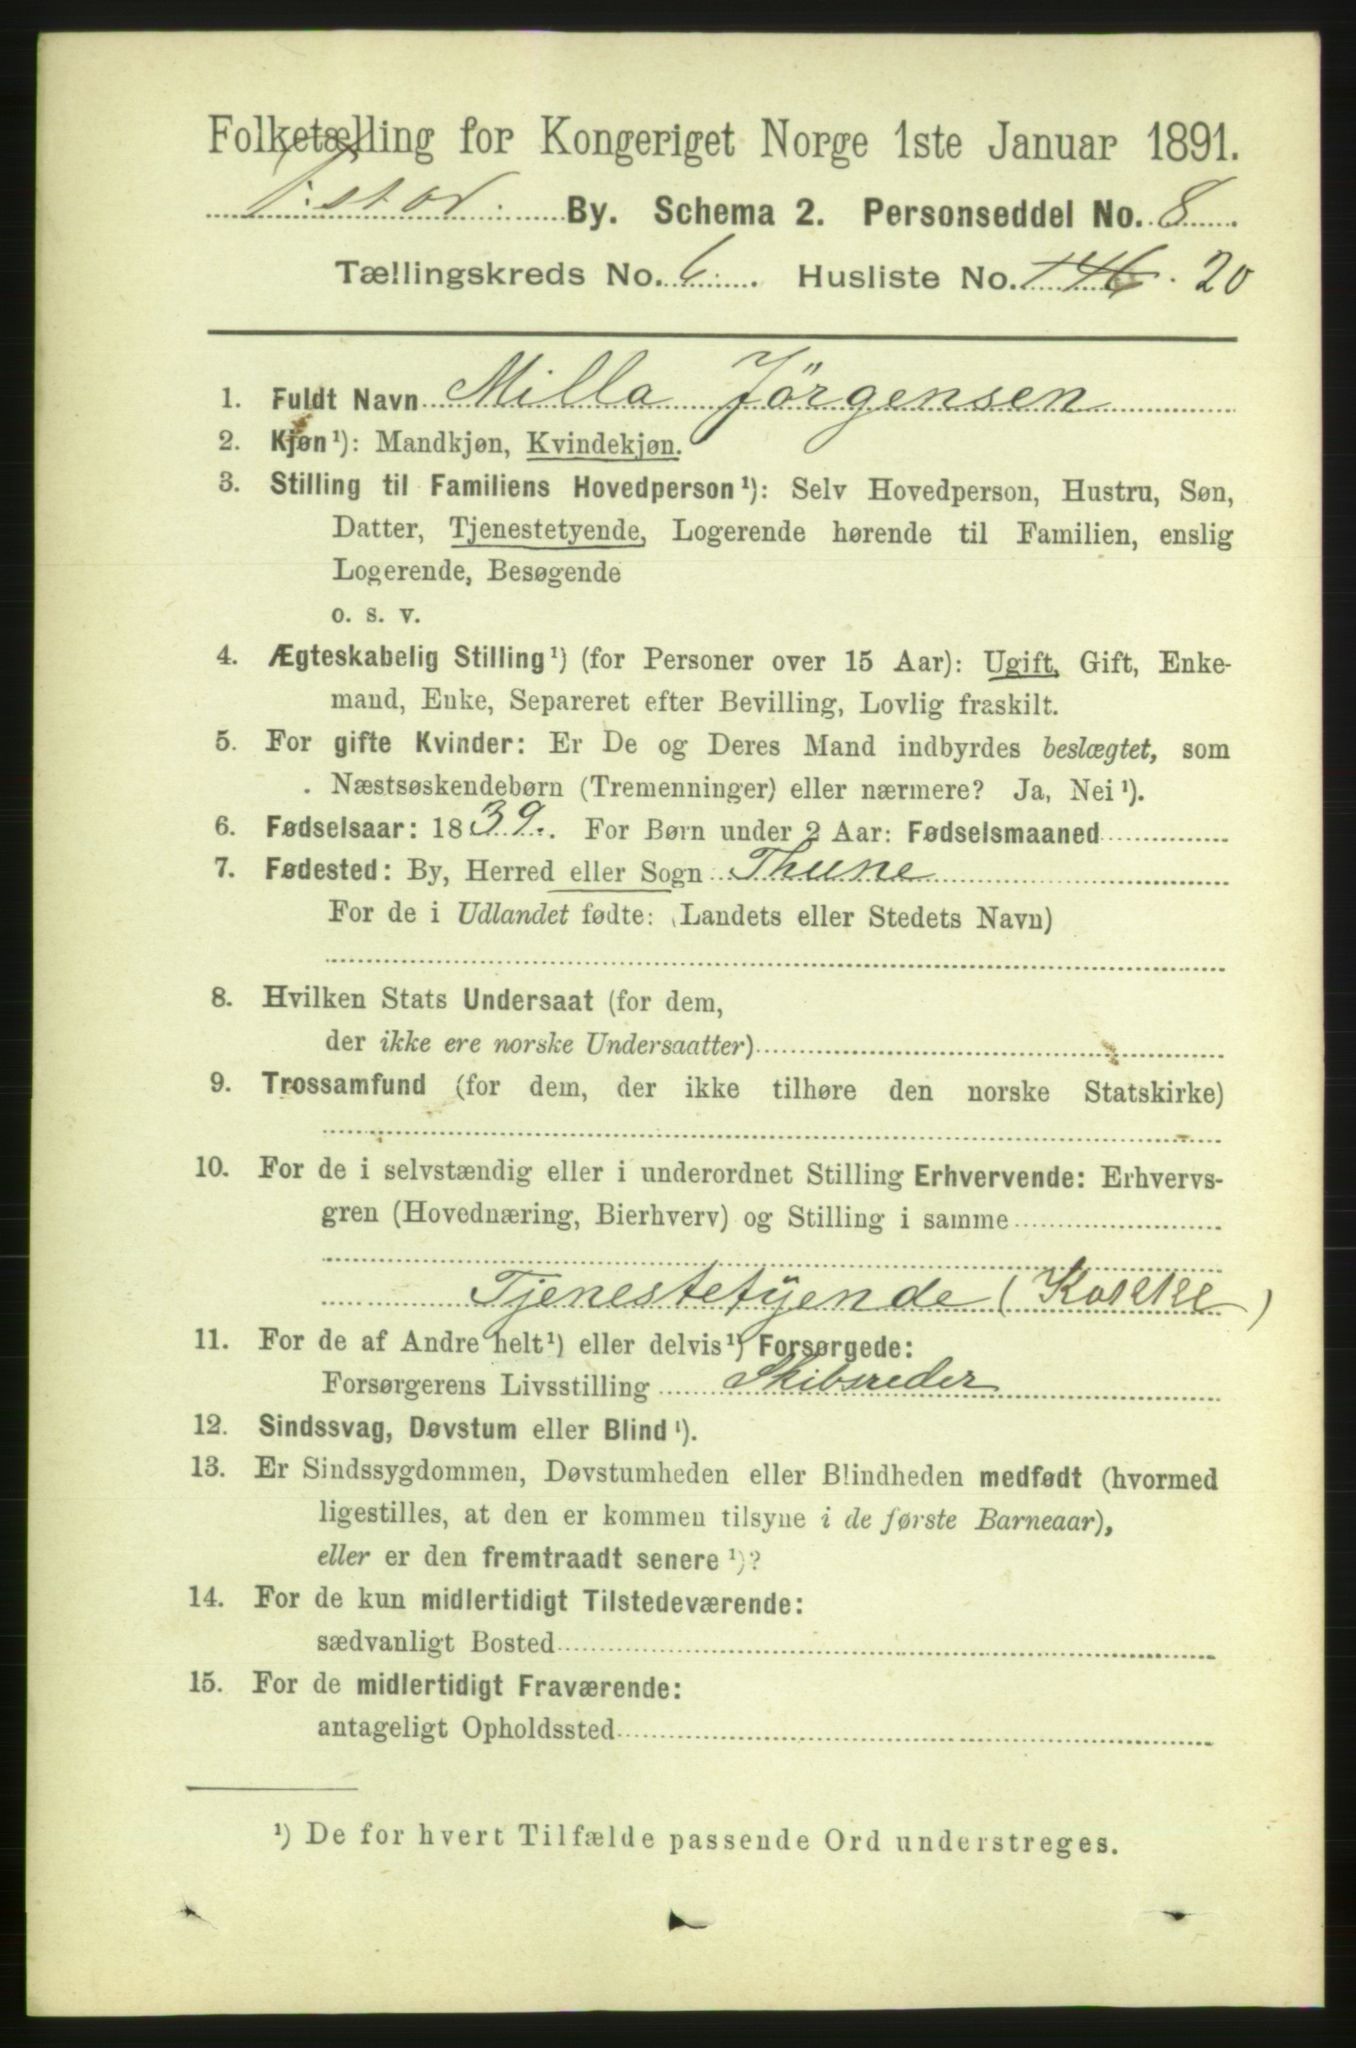 Folketælling for Kongeriget Norge 1ste Januar 1891.
By. Schema 2. Personseddel No. 8.
Tællingskreds No. 6. Husliste No. 146. 20
1. Fuldt Navn Milla Jörgensen
2. Kjøn¹): Mandkjøn, Kvindekjøn.
3. Stilling til Familiens Hovedperson¹): Selv Hovedperson, Hustru, Søn,
Datter, Tjenestetyende, Logerende hørende til Familien, enslig
Logerende, Besøgende
o. s. v.
4. Ægteskabelig Stilling¹) (for Personer over 15 Aar): Ugift, Gift, Enke-
mand, Enke, Separeret efter Bevilling, Lovlig fraskilt.
5. For gifte Kvinder: Er De og Deres Mand indbyrdes beslægtet, som
Næstsøskendebørn (Tremenninger) eller nærmere? Ja, Nei¹).
6. Fødselsaar: 1839. For Børn under 2 Aar: Fødselsmaaned
7. Fødested: By, Herred eller Sogn Thune
For de i Udlandet fødte: (Landets eller Stedets Navn)
8. Hvilken Stats Undersaat (for dem,
der ikke ere norske Undersaatter)
9. Trossamfund (for dem, der ikke tilhøre den norske Statskirke)
10. For de i selvstændig eller i underordnet Stilling Erhvervende: Erhvervs-
gren (Hovednæring, Bierhverv) og Stilling i samme
Tjenestetyende (Kokke)
11. For de af Andre helt¹) eller delvis¹) Forsørgede:
Forsørgerens Livsstilling Skibsreder
12. Sindssvag, Døvstum eller Blind¹).
13. Er Sindssygdommen, Døvstumheden eller Blindheden medfødt (hvormed
ligestilles, at den er kommen tilsyne i de første Barneaar),
eller er den fremtraadt senere¹)?
14. For de kun midlertidigt Tilstedeværende:
sædvanligt Bosted
15. For de midlertidigt Fraværende:
antageligt Opholdssted
¹) De for hvert Tilfælde passende Ord understreges.